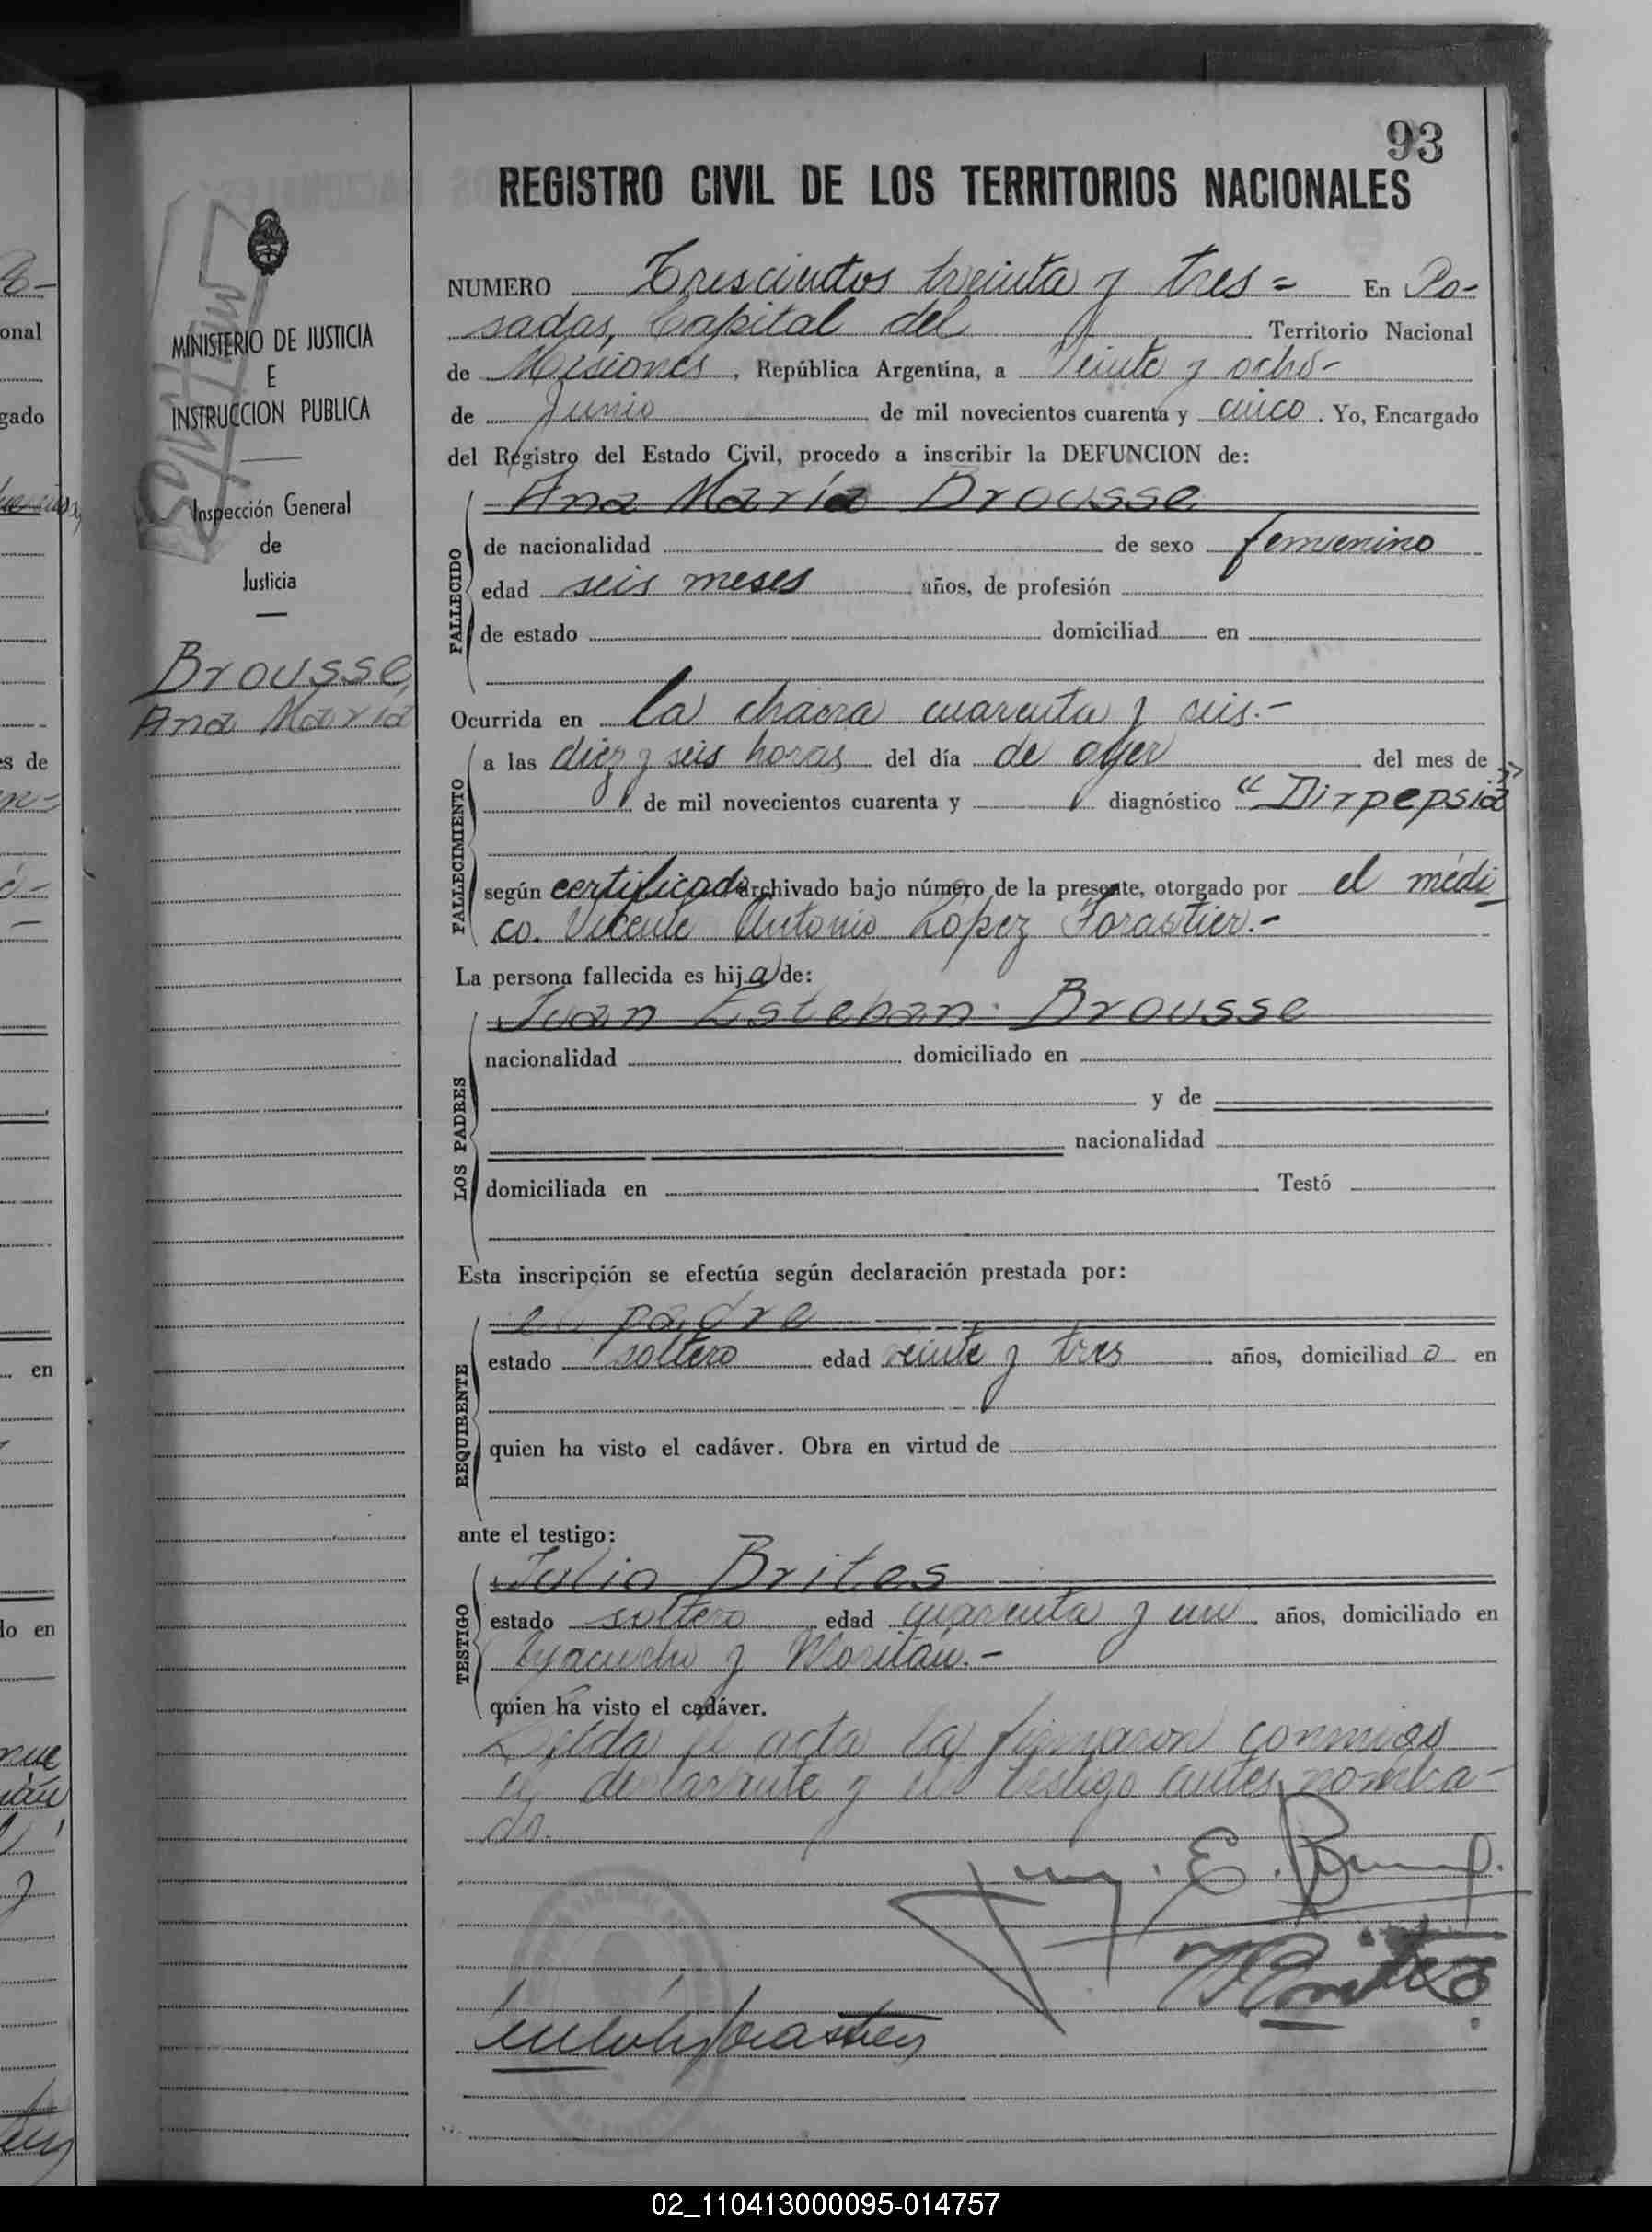 93
REGISTRO CIVIL DE LOS TERRITORIOS NACIONALES
NUMERO Trescientos treinta y tres = En Po-
sadas, Capital del Territorio Nacional
de Misiones, República Argentina, a Veinte y ocho-
de Junio de mil novecientos cuarenta y cinco. Yo, Encargado
del Registro del Estado Civil, procedo a inscribir la DEFUNCION de:
FALLECIDO
Ana María Brousse
de nacionalidad de sexo femenino
edad seis meses años, de profesión
de estado domiciliad en
Ocurrida en la chacra cuarenta y seis.-
FALLECIMIENTO
a las diez y seis horas del día de ayer del mes de
de mil novecientos cuarenta y diagnóstico "Dirpepsia"
según certificado archivado bajo número de la presente, otorgado por el médi
co. Vicente Antonio López Forastier.-
La persona fallecida es hija de:
LOS PADRES
Juan Esteban Brousse
nacionalidad domiciliado en
y de
nacionalidad
domiciliada en Testó
Esta inscripción se efectúa según declaración prestada por:
REQUIRENTE
el padre
estado soltero edad veinte y tres años, domiciliado en
quien ha visto el cadáver. Obra en virtud de
ante el testigo:
TESTIGO
Julio Brites
estado soltero edad cuarenta y un años, domiciliado en
Ayacucho y Moritán.-
quien ha visto el cadáver.
Leída el acta la firmaron conmigo
el declarante y el testigo antes nombra-
do.
MINISTERIO DE JUSTICIA
E
INSTRUCCION PUBLICA
Inspección General
de
Justicia
Brousse,
Ana María
02_110413000095-014757